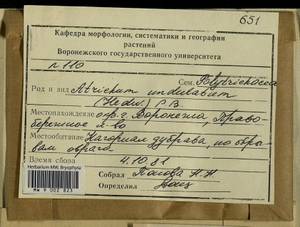 651
Кафедра морфологии, систематики и географии
растений
Воронежского государственного университета
п 110
Сем. Polytrichacea
Род и вид Atrichum undulatum
(Hedw.) P.B.
Местонахождение окр. г. Воронежа, Право-
бережное л-во
Местообитание Нагорная дубрава, по обры-
вам оврага
Время сбора 4.10.81
Собрал Попова Н.Н
Определил
Herbarium MW, Bryophyta
MW 9 002 823